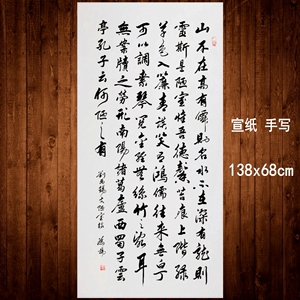 山不在高有僊則名水不在深有龍則
靈斯是陋室惟吾德馨苔痕上階綠
草色入簾青談笑有鴻儒往來無白丁
可以調素琴閱金經無絲竹之亂耳
無案牘之勞形南陽諸葛廬西蜀子雲
亭孔子云何陋之有
劉禹錫文陋室銘
宣纸 手写
138x68cm